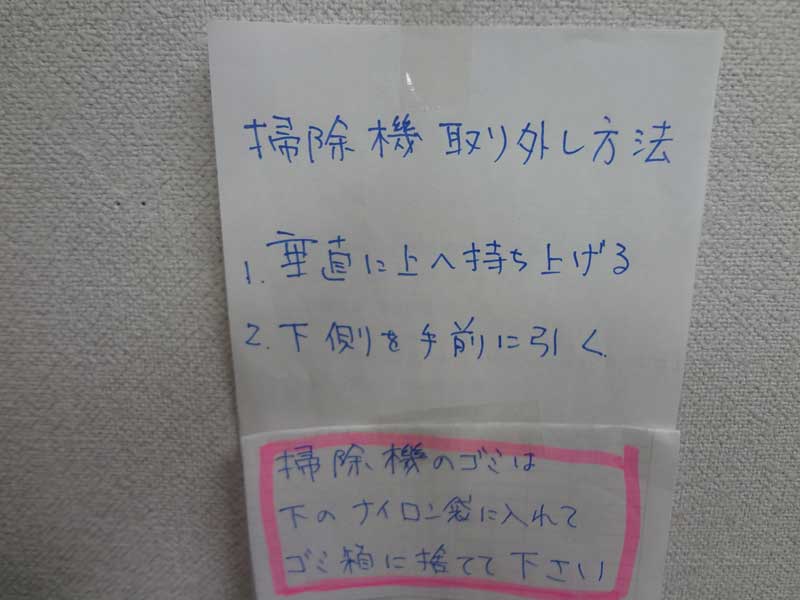 掃除機 取り外し方法
1. 垂直に上へ持ち上げる
2. 下側を手前に引く.
掃除機のゴミは
下のナイロン袋に入れて
ゴミ箱に捨てて下さい